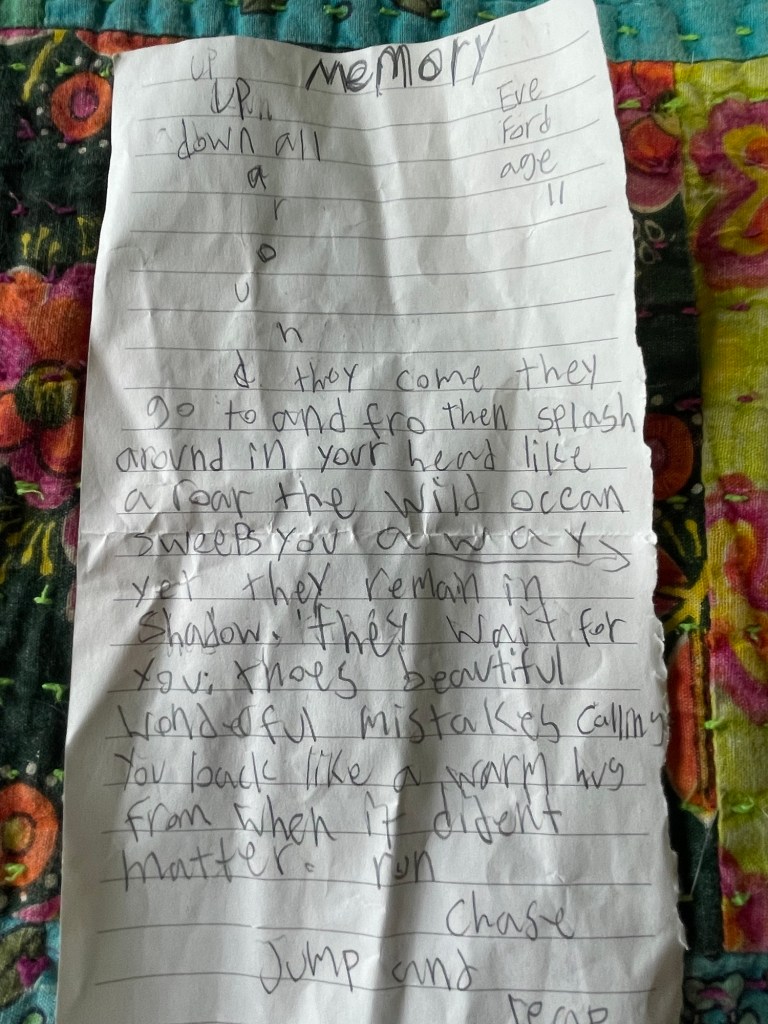 Memory
up
up
Eve
Ford
age
11
down all
a
r
o
u
n
d they come they
go to and fro then splash
around in your head like
a roar the wild ocean
sweeps you away
yet they remain in
shadow. They wait for
you, thoes beautiful
wonderful mistakes calling
you back like a warm hug
from when it dident
matter. run
chase
Jump and